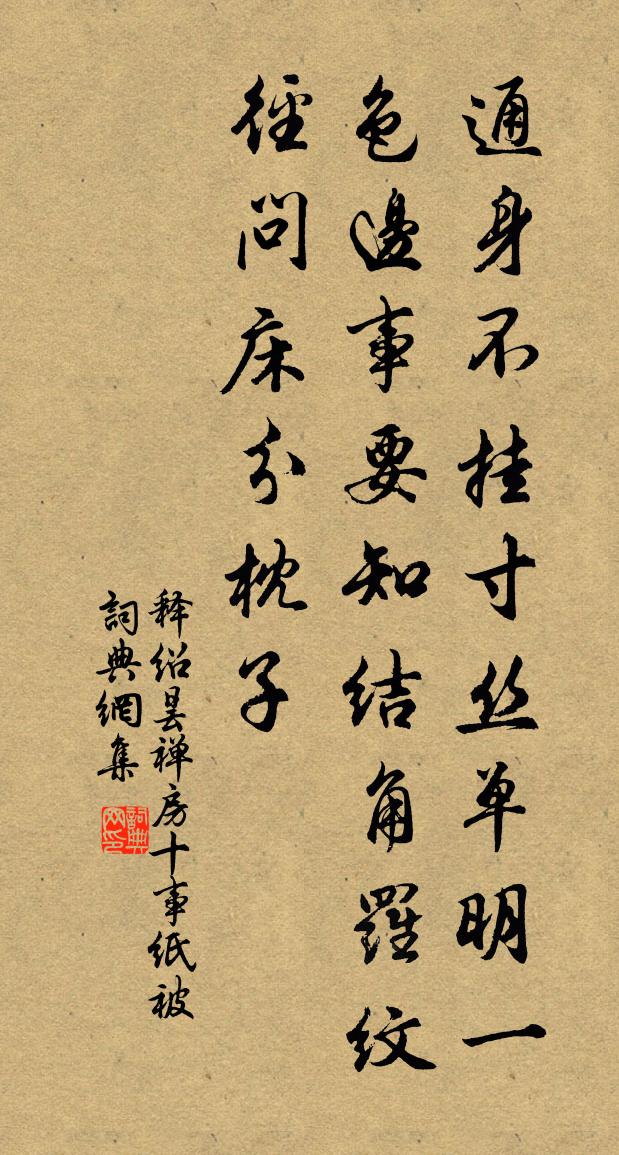 通身不挂寸丝单明一
色邊事要知结角羅纹
徑问床分枕子
释绍昙禅房十事纸被
詞典網集
詞典网印